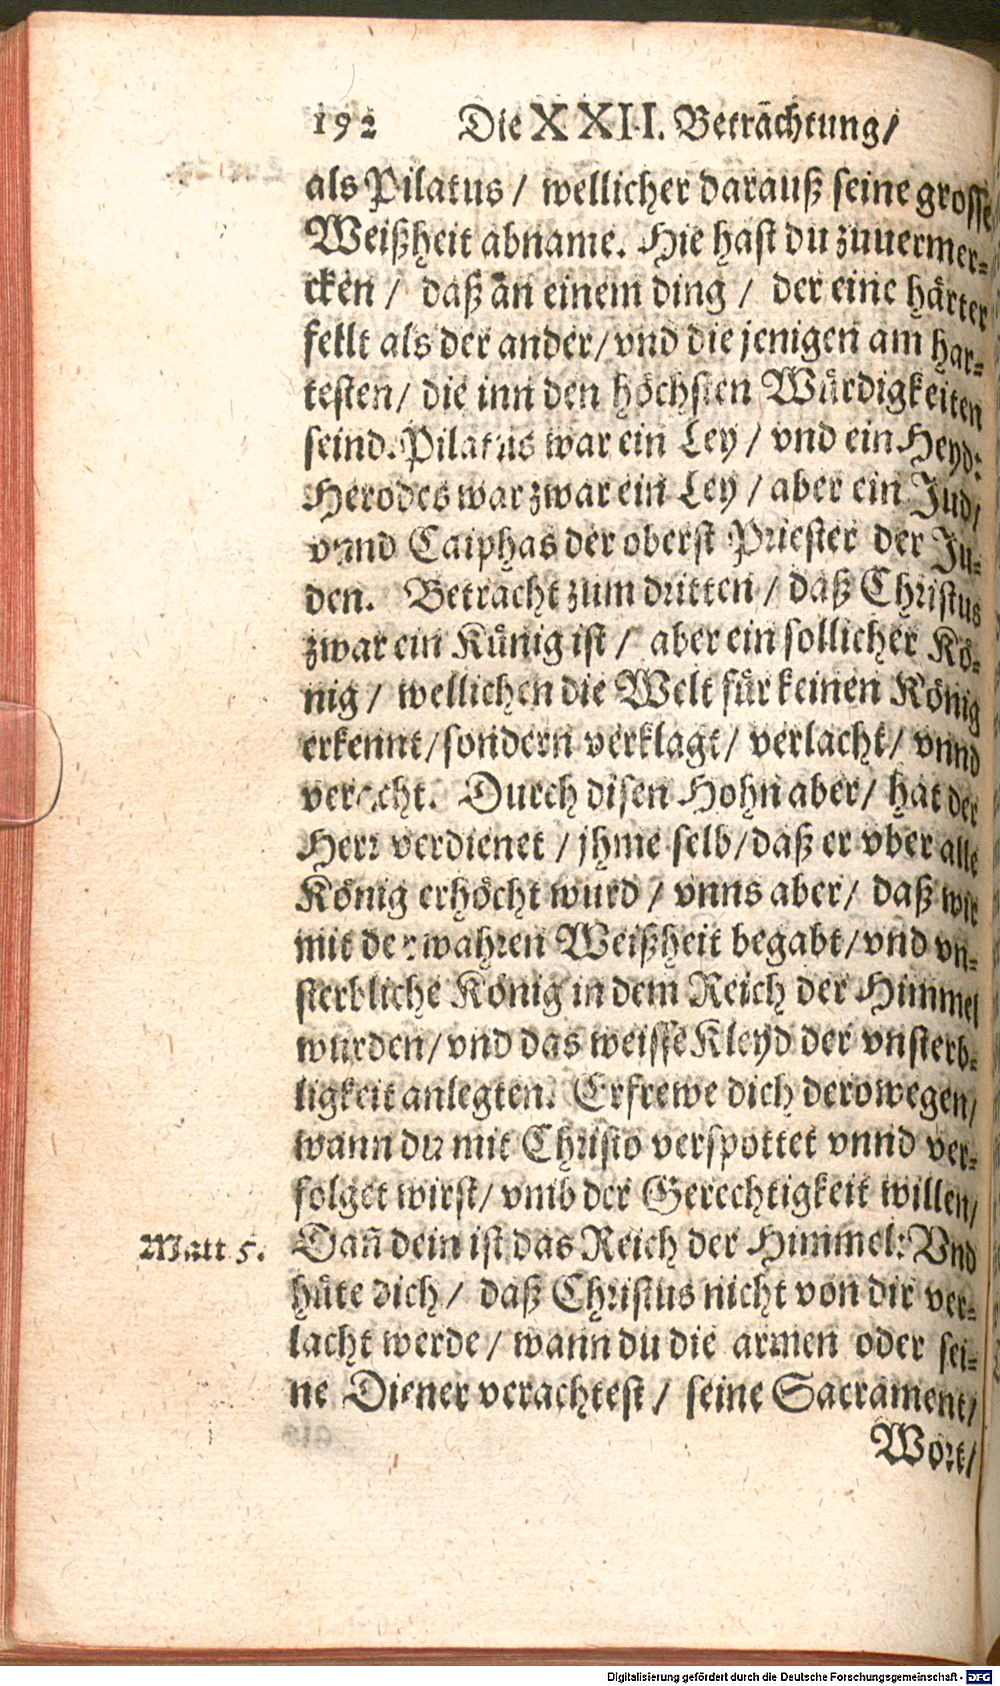 192 Die XXII. Beträchtung/
als Pilatus / wellicher darauß seine grosse
Weißheit abname. Hie hast du zuuermer-
cken / daß an einem ding / der eine härter
fellt als der ander/ vnd die jenigen am har-
testen/ die inn den höchsten Würdigkeiten
seind. Pilatus war ein Ley / vnd ein Heyd:
Herodes war zwar ein Ley / aber ein Jud/
vnnd Caiphas der oberst Priester der Ju-
den. Betracht zum dritten / daß Christus
zwar ein Künig ist / aber ein sollicher Kö-
nig / wellichen die Welt für keinen König
erkennt/ sondern verklagt/ verlacht/ vnnd
veracht. Durch disen Hohn aber/ hat der
Herr verdienet / jhme selb/ daß er vber alle
König erhöcht wurd / vnns aber/ daß wir
mit der wahren Weißheit begabt/ vnd vn-
sterbliche König in dem Reich der Himmel
wurden/ vnd das weisse Kleyd der vnsterb-
ligkeit anlegten. Erfrewe dich derowegen/
wann du mit Christo verspottet vnnd ver-
folget wirst/ vmb der Gerechtigkeit willen/
Matt 5. Dañ dein ist das Reich der Himmel: Vnd
hüte dich / daß Christus nicht von dir ver-
lacht werde / wann du die armen oder sei-
ne Diener verachtest / seine Sacrament/
Wort/
Digitalisierung gefördert durch die Deutsche Forschungsgemeinschaft - DFG